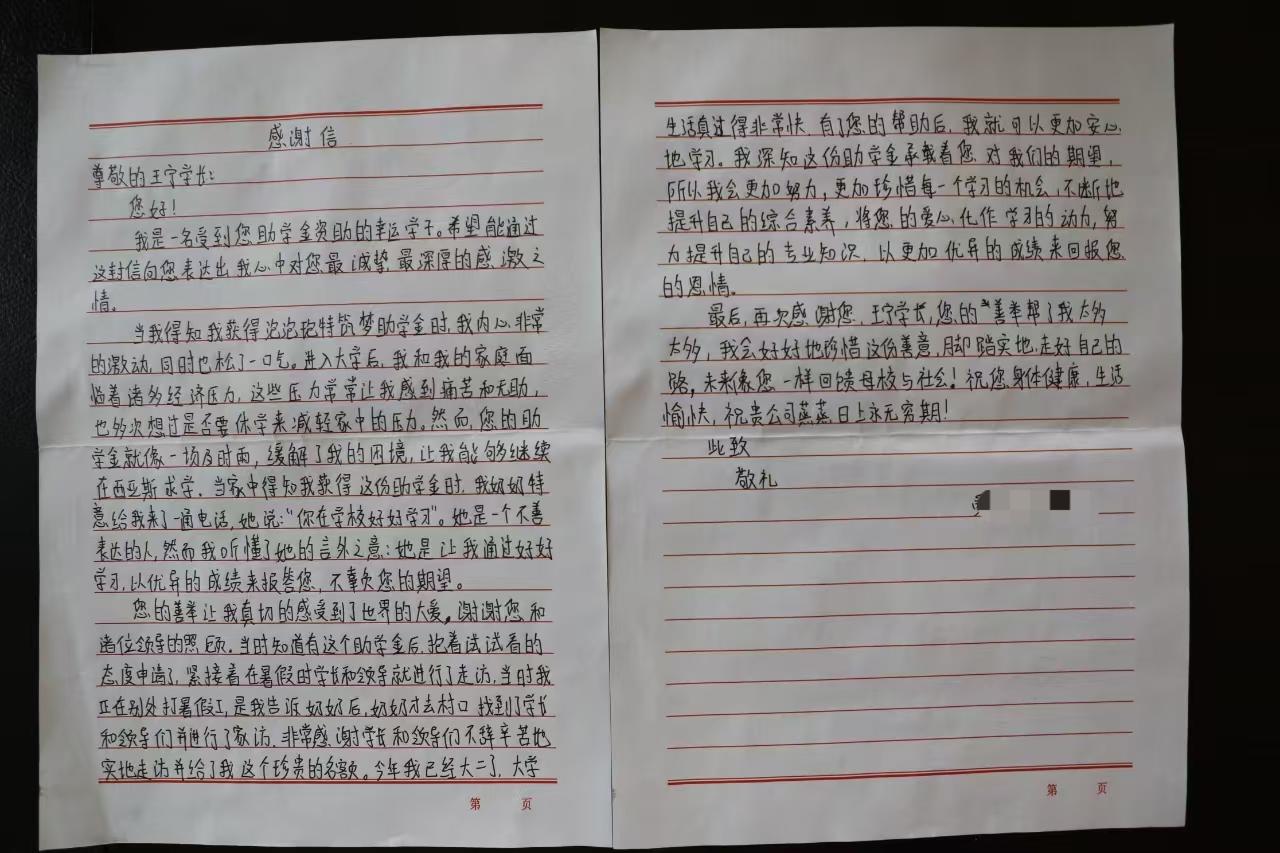 感谢信
尊敬的王宁学长：
您好！
我是一名受到您助学金资助的幸运学子。希望能通过
这封信向您表达出我心中对您最诚挚、最深厚的感激之
情。
当我得知我获得泡泡玛特筑梦助学金时，我内心非常
的激动，同时也松了一口气。进入大学后，我和我的家庭面
临着诸多经济压力，这些压力常常让我感到痛苦和无助，
也多次想过是否要休学来减轻家中的压力。然而，您的助
学金就像一场及时雨，缓解了我的困境，让我能够继续
在西亚斯求学。当家中得知我获得这份助学金时，我奶奶特
意给我来了一通电话，她说：“你在学校好好学习”。她是一个不善
表达的人，然而我听懂了她的言外之意：她是让我通过好好
学习，以优异的成绩来报答您，不辜负您的期望。
您的善举让我真切的感受到了世界的大爱。谢谢您和
诸位领导的照顾。当时知道有这个助学金后，抱着试试看的
态度申请了，紧接着在暑假时学长和领导就进行了走访，当时我
正在别处打暑假工，是我告诉奶奶后，奶奶才去村口找到了学长
和领导们并进行了家访，非常感谢学长和领导们不辞辛苦地
实地走访并给了我这个珍贵的名额。今年我已经大二了，大学
第 页
生活真过得非常快，有了您的帮助后，我就可以更加安心
地学习。我深知这份助学金承载着您对我们的期望，
所以我会更加努力，更加珍惜每一个学习的机会，不断地
提升自己的综合素养，将您的爱心化作学习的动力，努
力提升自己的专业知识，以更加优异的成绩来回报您
的恩情。
最后，再次感谢您，王宁学长，您的善举帮了我太多
太多，我会好好地珍惜这份善意，脚踏实地，走好自己的
路，未来像您一样回馈母校与社会！祝您身体健康，生活
愉快，祝贵公司蒸蒸日上永无穷期！
此致
敬礼
第 页